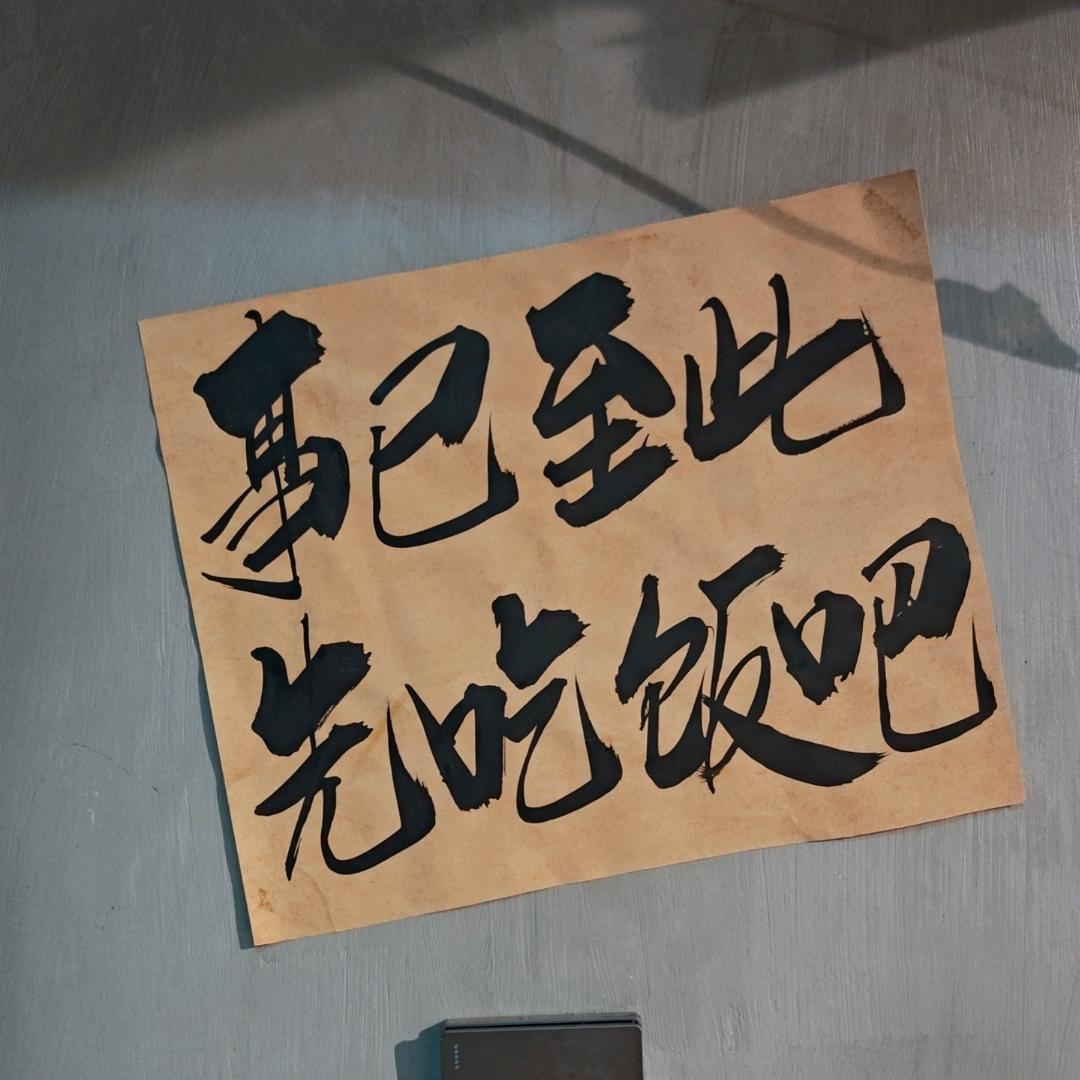 事已至此
先吃饭吧